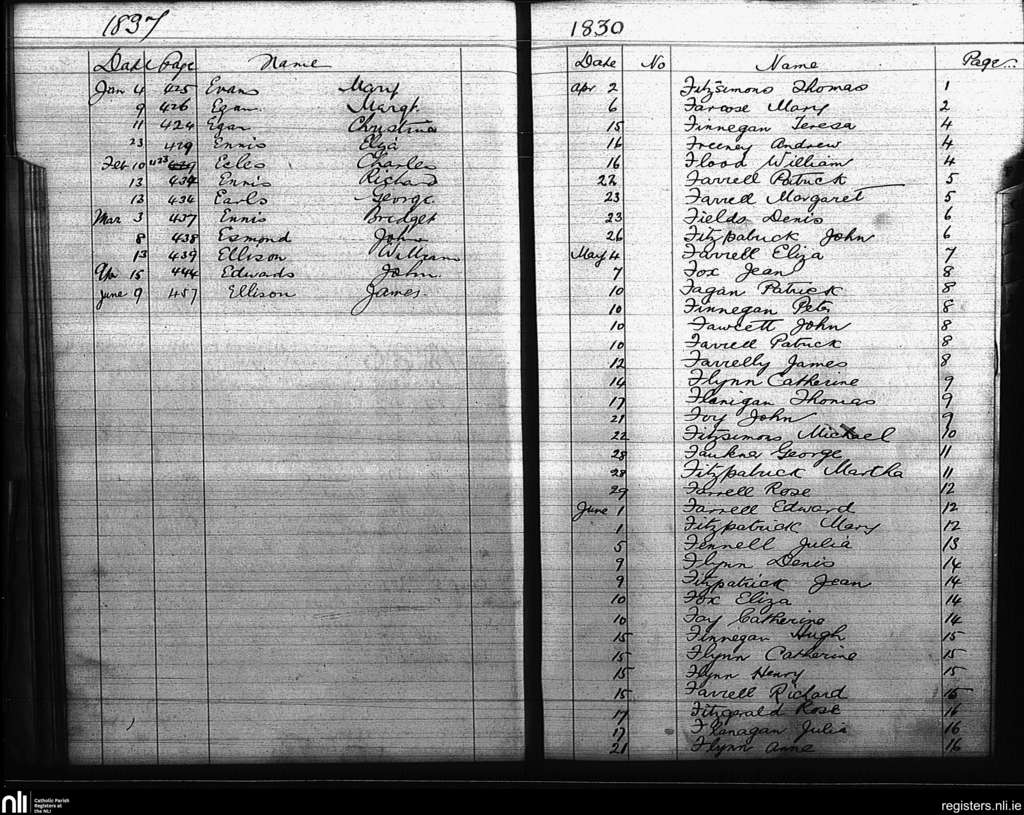 1837
Date Page Name
Jan 4 425 Evans Mary
9 426 Egan Margt
11 424 Egan Christina
23 429 Ennis Eliza
Feb 10 423 Eccles Charles
13 434 Ennis Richard
13 434 Earls George
Mar 3 437 Ennis Bridget
8 438 Esmond John
13 439 Ellison William
Apr 15 444 Edwards John
June 9 457 Ellison James
1830
Date No Name Page
Apr 2 Fitzsimons Thomas 1
6 Farcose Mary 2
15 Finnegan Teresa 4
16 Freeney Andrew 4
16 Flood William 4
22 Farrell Patrick 5
23 Farrell Margaret 5
23 Fields Denis 6
26 Fitzpatrick John 6
May 4 Farrell Eliza 7
7 Fox Jean 8
10 Fagan Patrick 8
10 Finnegan Peter 8
10 Fawcett John 8
10 Farrell Patrick 8
12 Farrelly James 8
14 Flynn Catherine 9
17 Flanigan Thomas 9
21 Foy John 9
22 Fitzsimons Michael 10
28 Faukna George 11
28 Fitzpatrick Martha 11
29 Farrell Rose 12
June 1 Farrell Edward 12
1 Fitzpatrick Mary 12
5 Fennell Julia 13
9 Flynn Denis 14
9 Fitzpatrick Jean 14
10 Fox Eliza 14
10 Foy Catherine 14
15 Finnegan Hugh 15
15 Flynn Catherine 15
15 Flynn Henry 15
15 Farrell Richard 15
17 Fitzgerald Rose 16
17 Flanagan Julia 16
21 Flynn Anne 16
nli Catholic Parish
Registers at
the NLI
registers.nli.ie